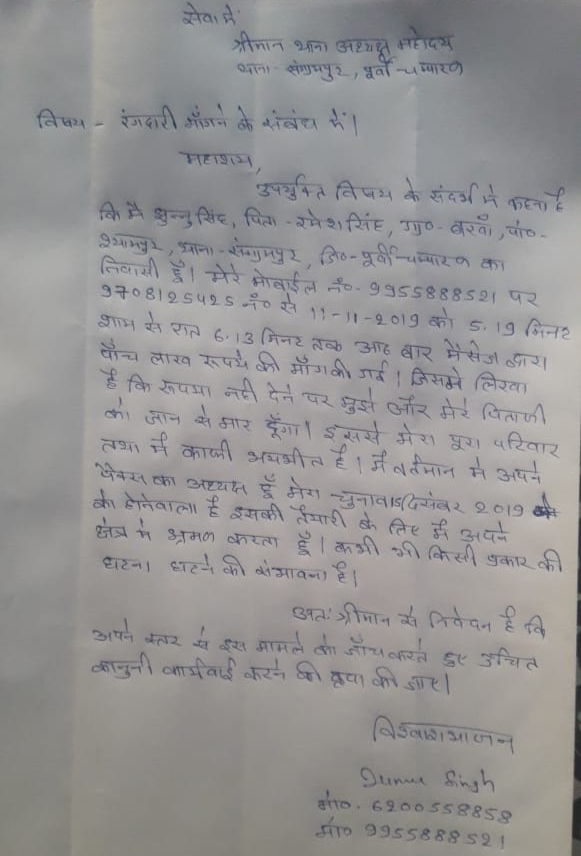 सेवा में
श्रीमान थाना अध्यक्ष महोदय
थाना - संग्रामपुर, पूर्वी चम्पारण
विषय - रंगदारी माँगने के संबंध में।
महाशय,
उपर्युक्त विषय के संदर्भ में कहना है
कि मैं झुन्नु सिंह, पिता - रमेश सिंह, ग्रा०- बरवाँ, पो०-
श्यामपुर, थाना - संग्रामपुर, जि०- पूर्वी चम्पारण का
निवासी हूँ। मेरे मोबाईल नं०- 9955888521 पर
9708125425 नं० से 11-11-2019 को 5.19 मिनट
शाम से रात 6.13 मिनट तक आठ बार मैसेज द्वारा
पाँच लाख रूपये की माँग की गई। जिसमें लिखा
है कि रूपया नहीं देने पर मुझे और मेरे पिताजी
को जान से मार दूँगा। इससे मेरा पूरा परिवार
तथा मैं काफी भयभीत है। मैं वर्तमान में अपने
पैक्स का अध्यक्ष हूँ मेरा चुनाव दिसंबर 2019
को होनेवाला है इसकी तैयारी के लिए मैं अपने
क्षेत्र में भ्रमण करता हूँ। कभी भी किसी प्रकार की
घटना घटने की संभावना है।
अतः श्रीमान से निवेदन है कि
अपने स्तर से इस मामले को जाँच करते हुए उचित
कानुनी कार्यवाई करने की कृपा की जाए।
विश्वाशभाजन
Singh
मो०. 6200558858
मो० 9955888521